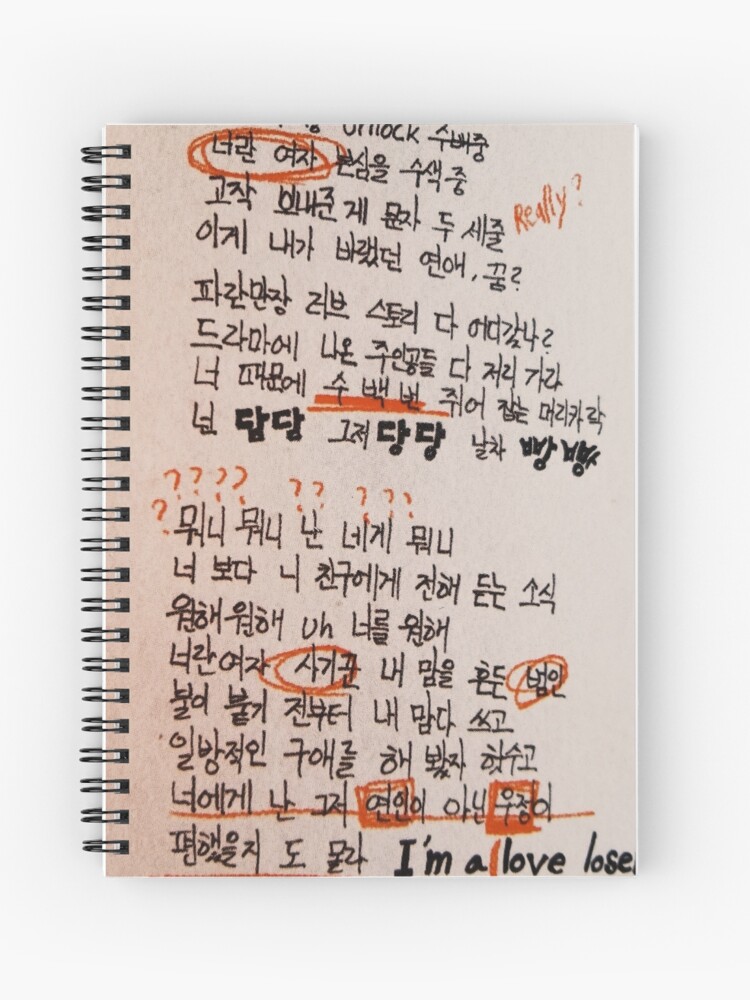 Unlock 수배중
너란 여자 본심을 수색중
고작 보내준게 문자 두 세줄 Really?
이게 내가 바랬던 연애, 꿈?
파란만장 러브 스토리 다 어디갔나?
드라마에 나온 주인공들 다 저리 가라
너 때문에 수 백 번 쥐어 잡는 머리카락
넌 담담 그저 당당 날차 빵빵
? ? ? ? ? ? ? ? ? ?
뭐니 뭐니 난 네게 뭐니
너 보다 니 친구에게 전해 듣는 소식
원해 원해 uh 너를 원해
너란 여자 사기꾼 내 맘을 흔든 범인
불이 붙기 전부터 내 맘 다 쓰고
일방적인 구애를 해 봤자 헛수고
너에게 난 그저 연인이 아닌 우정이
편했을지 도 몰라 I'm a love lose